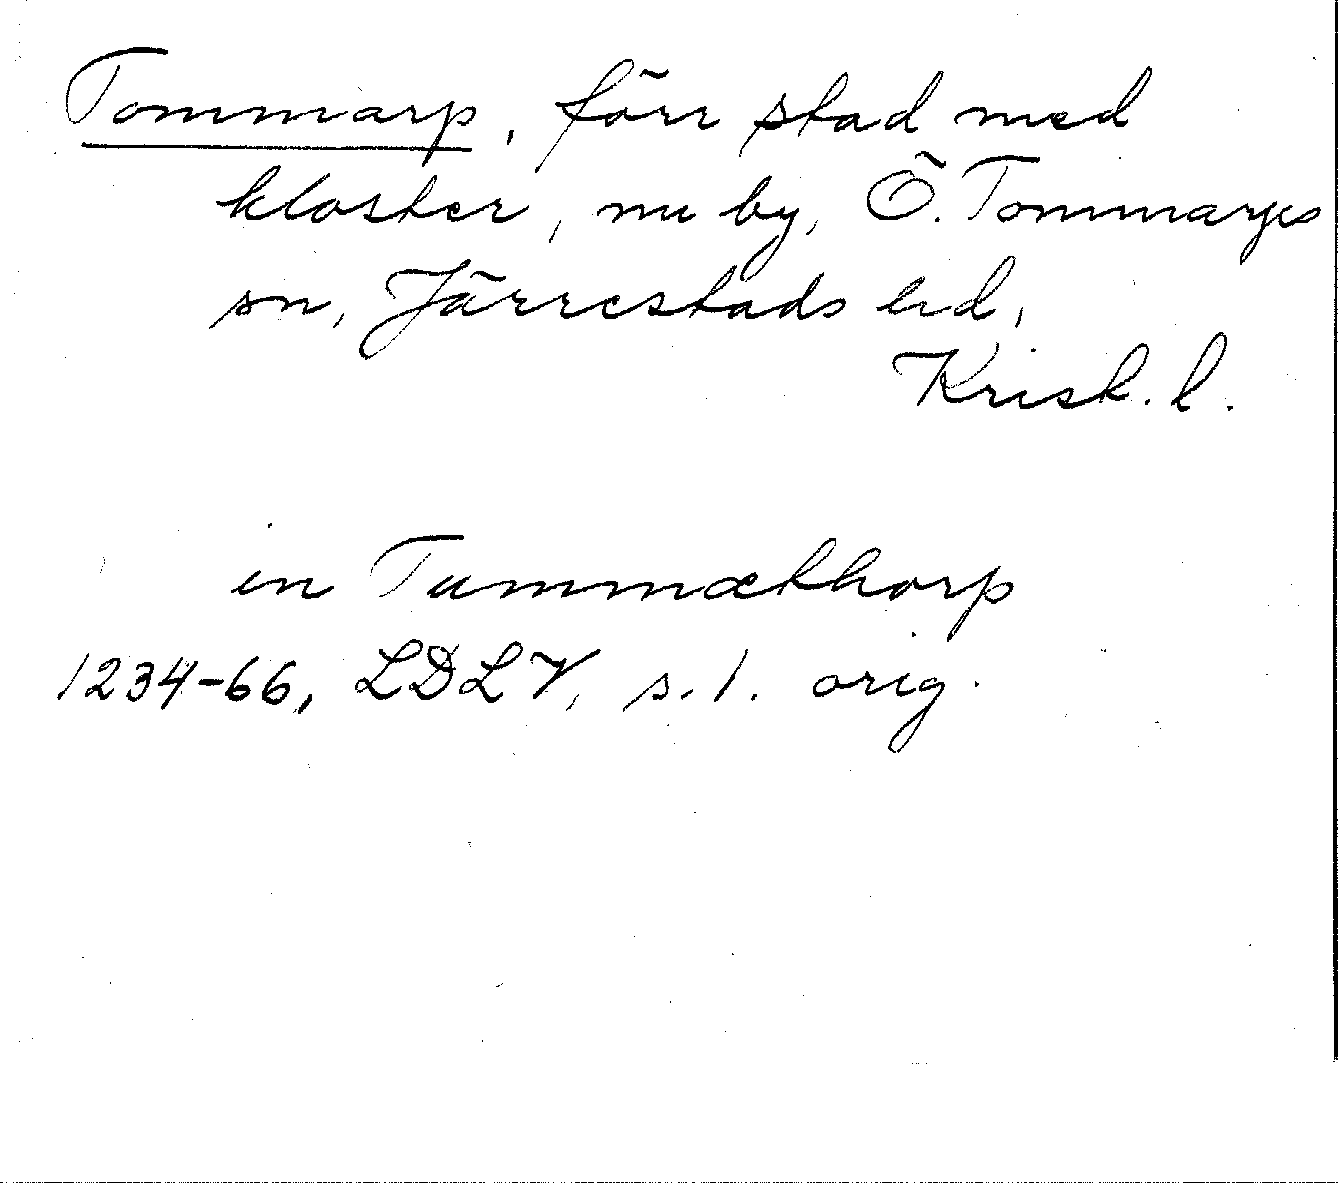 Tommarp, förr stad med
kloster, nu by, Ö. Tommarps
sn, Järrestads hd,
Krist. l.
in Tummæthorp
1234-66, LDLV, s. 1. orig.